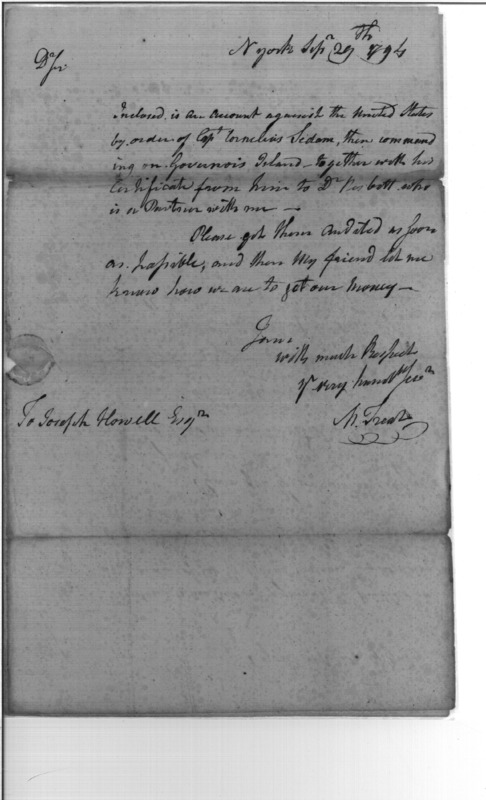 N York Sepr 29th 1794
Dr Sir
Inclosed is an account against the United States
by order of Capt Cornelius Sedam, then command
ing on Governors Island - together with his
Certificate from him to Dr who
is a Partner with me -
Please get them audited as soon
as possible, and then my friend let me
know how we are to get our money -
I am
with much Respect
yr very humbl Servt
To Joseph Howell Esqr
M. Treat